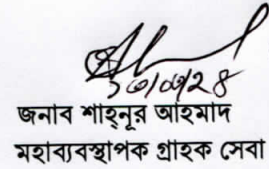 জনাব শাহ্‌নূর আহমাদ
মহাব্যবস্থাপক গ্রাহক সেবা